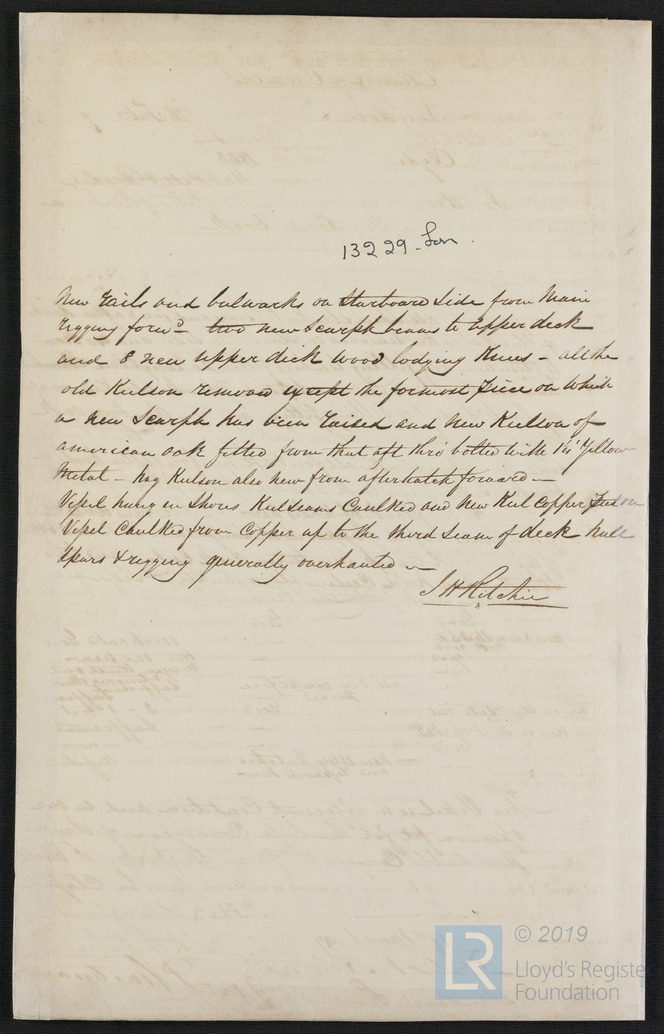 13229 - Lon.
New Rails and bulwarks on Starboard Side from Main
rigging forwd - two new Scarph beams to upper deck
and 8 new upper deck wood lodging Knees - all the
old Keelson removed except the formost Piece on which
a New Scarph has been raised and New Keelson of
american oak fitted from that aft thro' bolted with 1¼ Yellow
Metal - Rag Kelson also new from afterhatch forward -
Vessel hung in Shores Keel seams Caulked and New Keel Copper
Vessel Caulked from Copper up to the third Seam of deck hull
Spars & rigging generally overhauled -
J H Ritchie
LR
© 2019
Lloyd's Register
Foundation